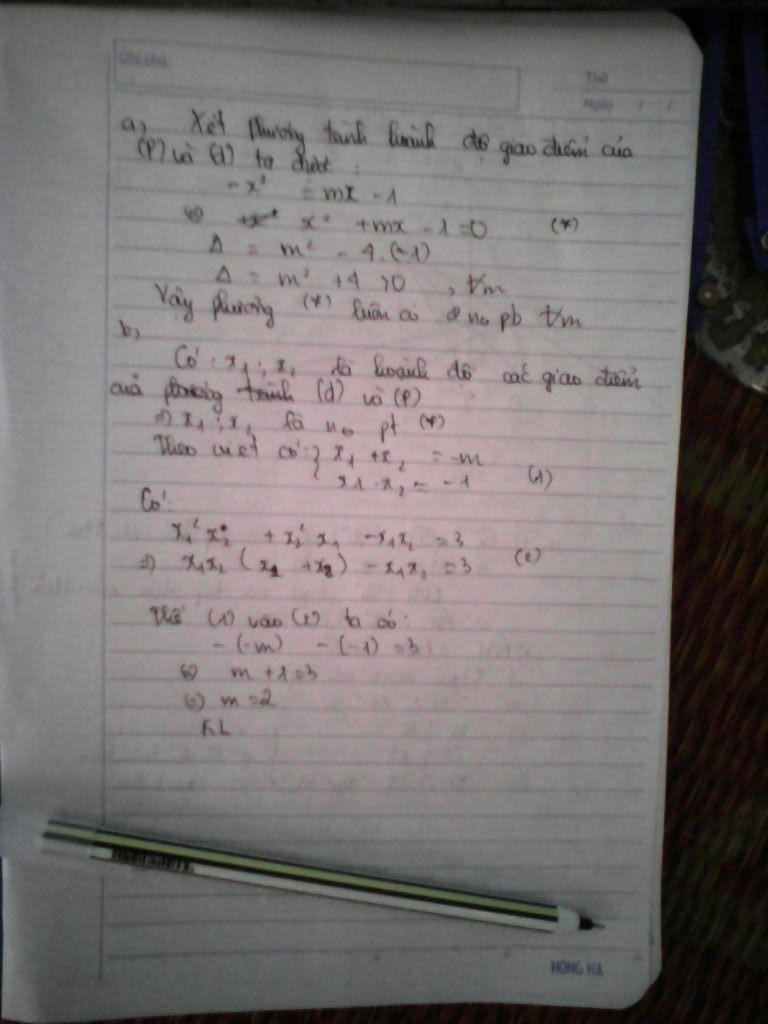 Ghi chú:
Thứ
Ngày / /
a, Xét phương trình hoành độ giao điểm của
(P) và (d) ta được :
-x² = mx - 1
⇔ x² + mx - 1 = 0 (*)
Δ = m² - 4.(-1)
Δ = m² + 4 > 0 , ∀m
Vậy phương (*) luôn có 2 no pb ∀m
b,
Có : x₁ ; x₂ là hoành độ các giao điểm
của phương trình (d) và (P)
=> x₁ ; x₂ là no pt (*)
Theo viet có : { x₁ + x₂ = -m
x₁ . x₂ = -1 (1)
Có :
x₁² x₂ + x₂² x₁ - x₁x₂ = 3
=> x₁x₂ (x₁ + x₂) - x₁x₂ = 3 (2)
Thế (1) vào (2) ta có :
- (-m) - (-1) = 3
⇔ m + 1 = 3
⇔ m = 2
KL
HỒNG HÀ